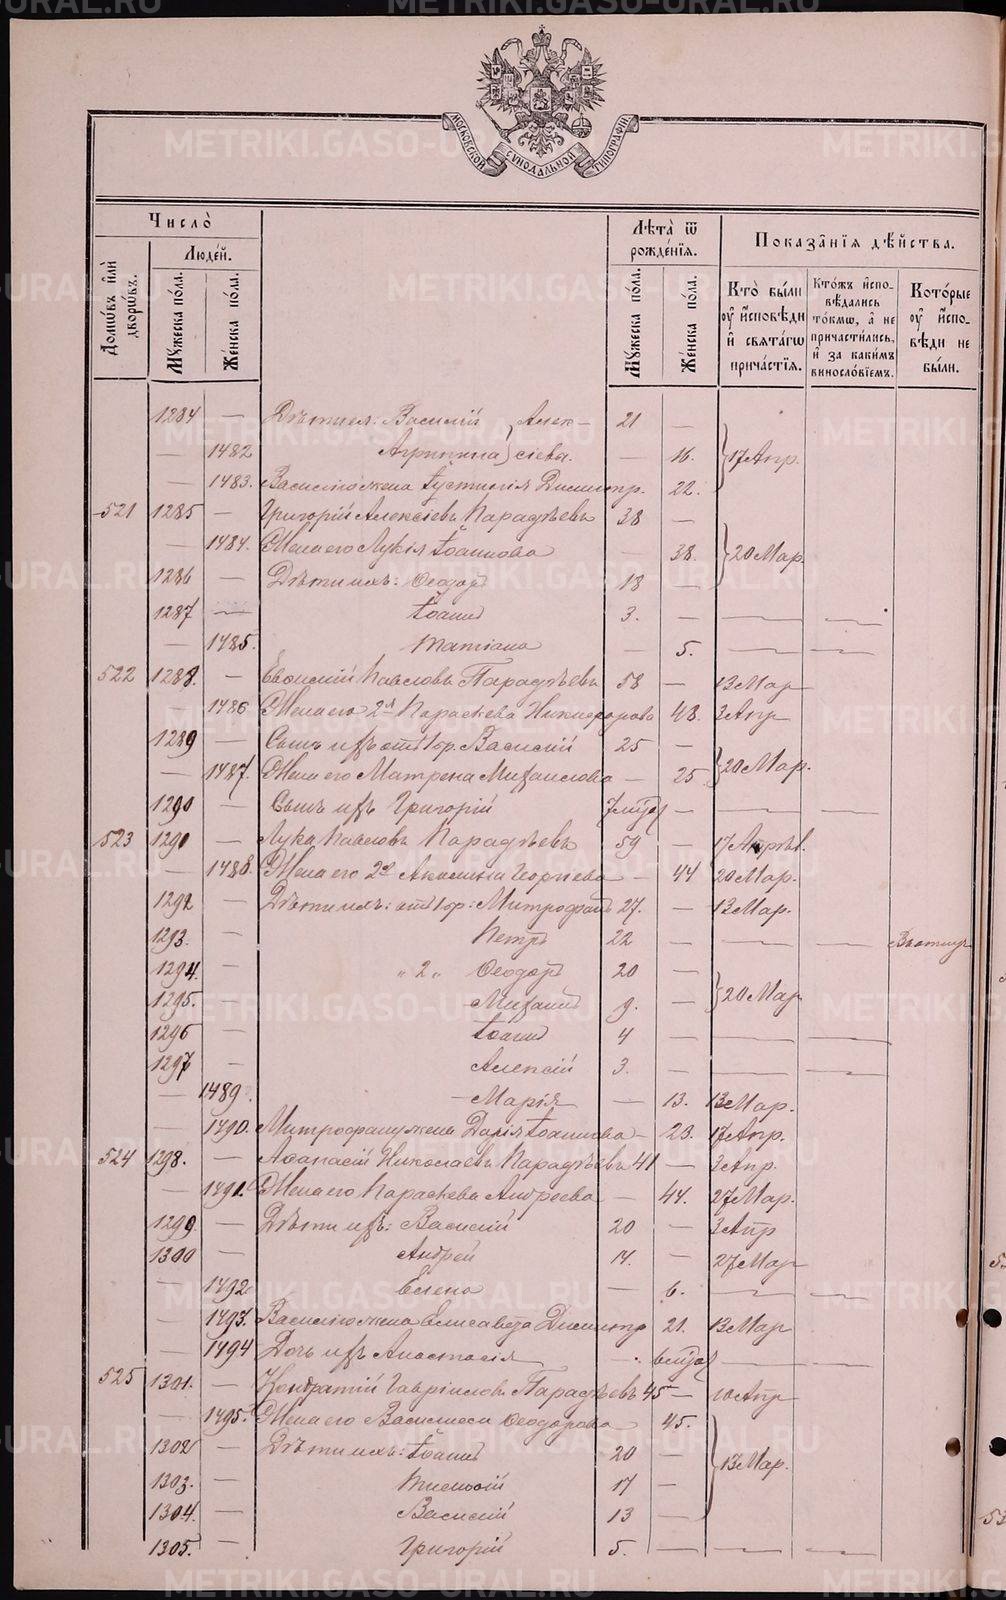 МОСКОВСКОЙ СѴНОДАЛЬНОЙ ТИПОГРАФІИ
Число̀
Людей.
Домѡвъ и҆лѝ дворѡвъ.
Мꙋжеска по́ла.
Же́нска по́ла.
Лѣта̀ ѿ рожде́нїѧ.
Мꙋжеска по́ла.
Же́нска по́ла.
Показа̑нїѧ дѣ́йства.
Кто̀ бы́ли ᲂу҆ и҆сповѣди и҆ свѧта́гѡ прича́стїѧ.
Кто́жъ и҆спо- вѣдались то́кмѡ, а҆ не причасти́лись, и҆ за каки́мъ винословїемъ.
Кото́рые ᲂу҆ и҆спо- вѣди не бы́ли.
1284 — Дѣти ея: Василій Алек- 21 —
— 1482 Агрипина сіева. — 16. 17 Апр.
— 1483. Василія жена Іустинія Димитр. 22.
521 1285 — Григорій Алексіевъ Парадѣевъ 38 —
— 1484. Жена его Лукія Іоаннова — 38. 20 Мар.
1286 — Дѣти ихъ: Ѳеодоръ 18 —
1287 — Іоаннъ 3. — — —
— 1485. Татіана — 5. — —
522 1288. — Евѳимій Павловъ Парадѣевъ 58 — 13 Мар
— 1486 Жена его 2я Параскева Никифорова 48. 3 Апр
1289 — Сынъ ихъ отъ 1 бр. Василій 25 —
— 1487. Жена его Матрена Михаилова — 25 20 Мар.
1290 — Сынъ ихъ Григорій 7 м — — —
523 1291 — Лука Павловъ Парадѣевъ 59 — 17 Апрѣл.
— 1488. Жена его 2я Акилина Георгіева — 44 20 Мар.
1292 — Дѣти ихъ: отъ 1 бр: Митрофанъ 27. — 13 Мар.
1293. — Петръ 22 — — —
1294. — „ 2 „ Ѳеодоръ 20 —
1295. — Михаилъ 9. — 20 Мар
1296 — Іоаннъ 4 — — —
1297 — Алексій 3. — — —
— 1489 Марія — 13. 13 Мар.
— 1490. Митрофана жена Дарія Іоаннова — 23. 17 Апр.
524 1298. — Аѳанасій Николаевъ Парадѣевъ 41 — 3 Апр.
— 1491. Жена его Параскева Андреева — 44. 27 Мар.
1299 — Дѣти ихъ: Василій 20 — 3 Апр
1300 — Андрей 14. — 27 Мар
— 1492 Елена — 6. — —
— 1493. Василія жена Елисавета Димитр 21. 13 Мар
— 1494 Дочь ихъ Анастасія — 6 — —
525 1301. — Кондратій Гавріиловъ Парадѣевъ 45 — 10 Апр
— 1495. Жена его Василиса Ѳеодорова 45.
1302 — Дѣти ихъ: Іоаннъ 20 — 13 Мар.
1303. — Тимоѳій 17 —
1304. — Василій 13 —
1305. — Григорій 5. — — —
METRIKI.GASO-URAL.RU